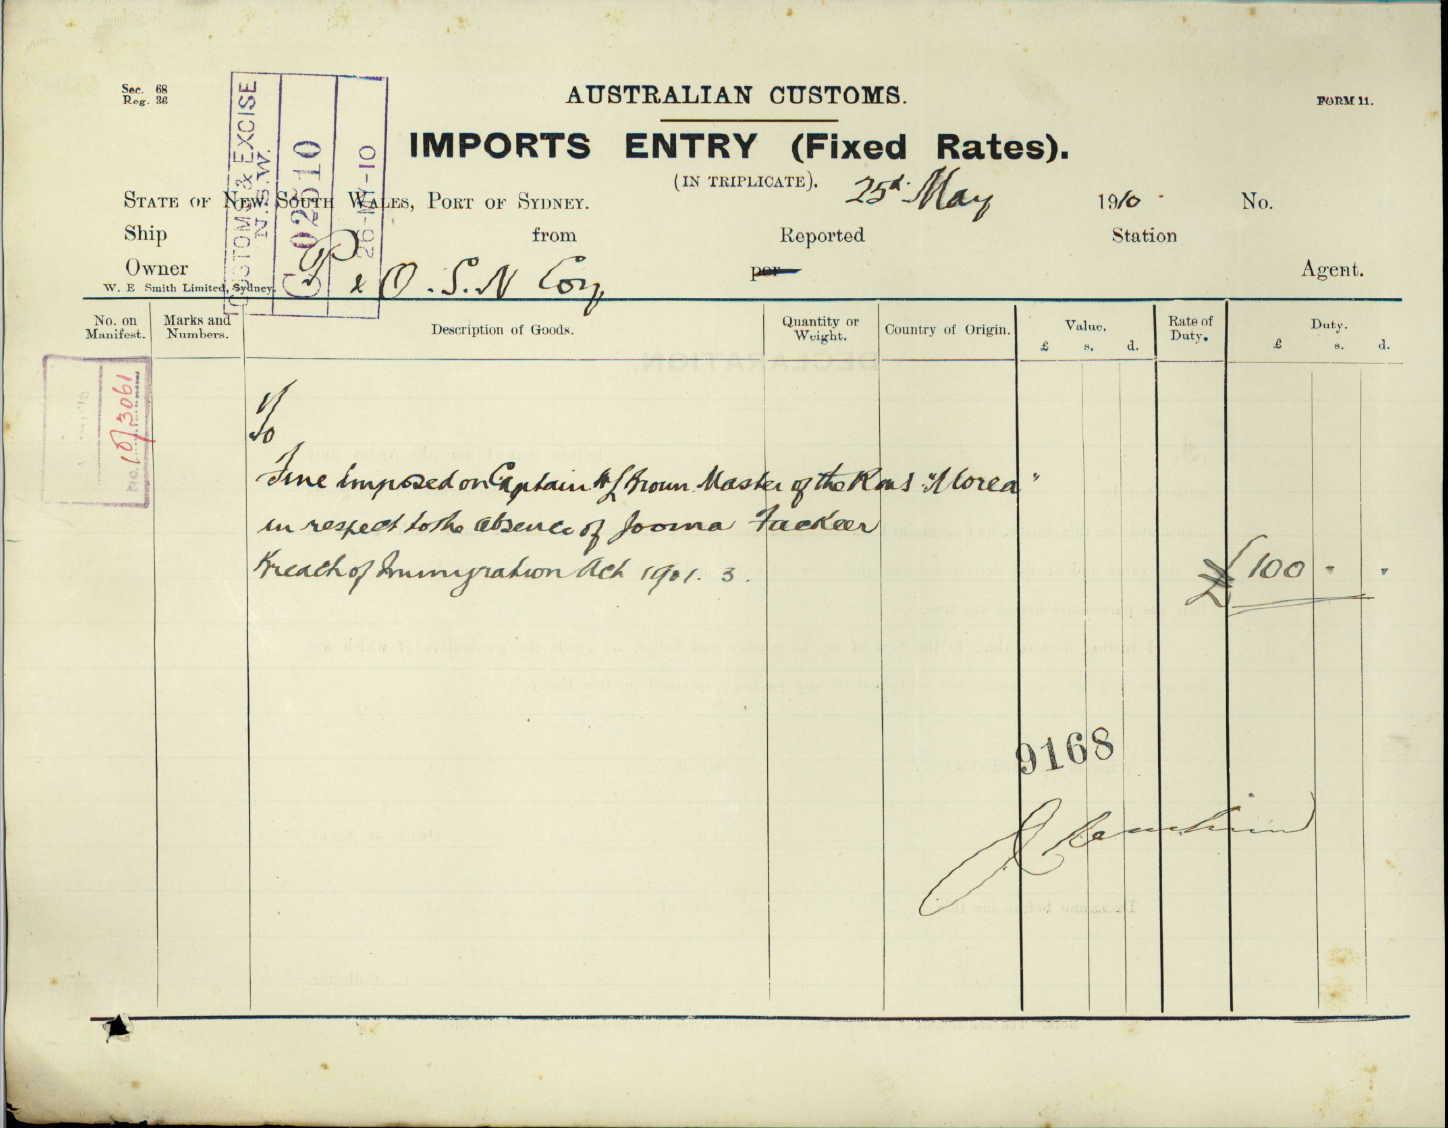 Sec. 68
Reg. 36
AUSTRALIAN CUSTOMS.
FORM 11.
IMPORTS ENTRY (Fixed Rates).
(IN TRIPLICATE).
CUSTOMS & EXCISE
N.S.W.
C 02510
26-MY-10
STATE OF NEW SOUTH WALES, PORT OF SYDNEY. 25th May 1910. No.
Ship from Reported Station
Owner P & O. S. N Coy per Agent.
W. E Smith Limited, Sydney.
No. on Manifest. Marks and Numbers. Description of Goods. Quantity or Weight. Country of Origin. Value. £ s. d. Rate of Duty. Duty. £ s. d.
No. 10/3061
To
Fine imposed on Captain Brown Master of the R.M.S "Morea"
in respect to the absence of Jooma Fackeer
Breach of Immigration Act 1901. 3.
£100 " "
9168